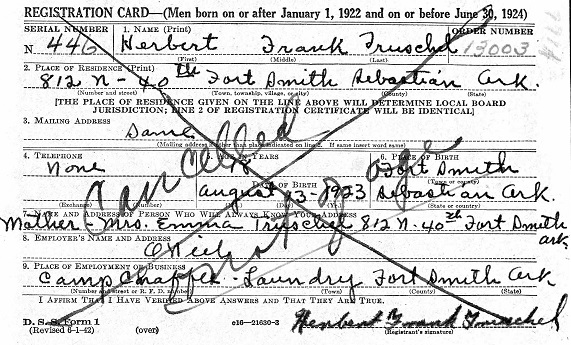 REGISTRATION CARD—(Men born on or after January 1, 1922 and on or before June 30, 1924)
SERIAL NUMBER 1. NAME (Print) ORDER NUMBER
N 446 Herbert Frank Truschel 13003
(First) (Middle) (Last)
2. PLACE OF RESIDENCE (Print)
812 N - 40th Fort Smith Sebastian Ark.
(Number and street) (Town, township, village, or city) (County) (State)
[THE PLACE OF RESIDENCE GIVEN ON THE LINE ABOVE WILL DETERMINE LOCAL BOARD
JURISDICTION; LINE 2 OF REGISTRATION CERTIFICATE WILL BE IDENTICAL]
3. MAILING ADDRESS
Same
(Mailing address if other than place indicated on line 2. If same insert word same)
4. TELEPHONE 5. AGE IN YEARS 6. PLACE OF BIRTH
None 18 Fort Smith
DATE OF BIRTH (Town or county)
August 13 1923 Sebastian Ark.
(Exchange) (Number) (State or country)
7. NAME AND ADDRESS OF PERSON WHO WILL ALWAYS KNOW YOUR ADDRESS
Mother - Mrs. Emma Truschel 812 N. 40th Fort Smith
Ark
8. EMPLOYER'S NAME AND ADDRESS
9. PLACE OF EMPLOYMENT OR BUSINESS
Camp Chaffee - Laundry Fort Smith Ark.
(Number and street or R. F. D. number) (Town) (County) (State)
I AFFIRM THAT I HAVE VERIFIED ABOVE ANSWERS AND THAT THEY ARE TRUE.
D. S. S. Form 1
(Revised 6-1-42) (over) c16—21630-3 Herbert Frank Truschel
(Registrant's signature)
Cancelled
not of age